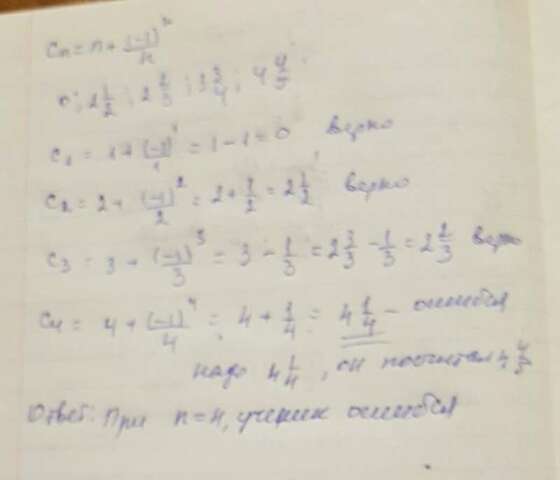 Cn = n + (-1)^n/n
0; 2 1/2; 2 2/3; 3 3/4; 4 4/5
C1 = 1 + (-1)^1/1 = 1 - 1 = 0 верно
C2 = 2 + (-1)^2/2 = 2 + 1/2 = 2 1/2 верно
C3 = 3 + (-1)^3/3 = 3 - 1/3 = 2 3/3 - 1/3 = 2 2/3 верно
C4 = 4 + (-1)^4/4 = 4 + 1/4 = 4 1/4 - ошибся
надо 4 1/4, он посчитал 4 4/5
Ответ: При n = 4, ученик ошибся